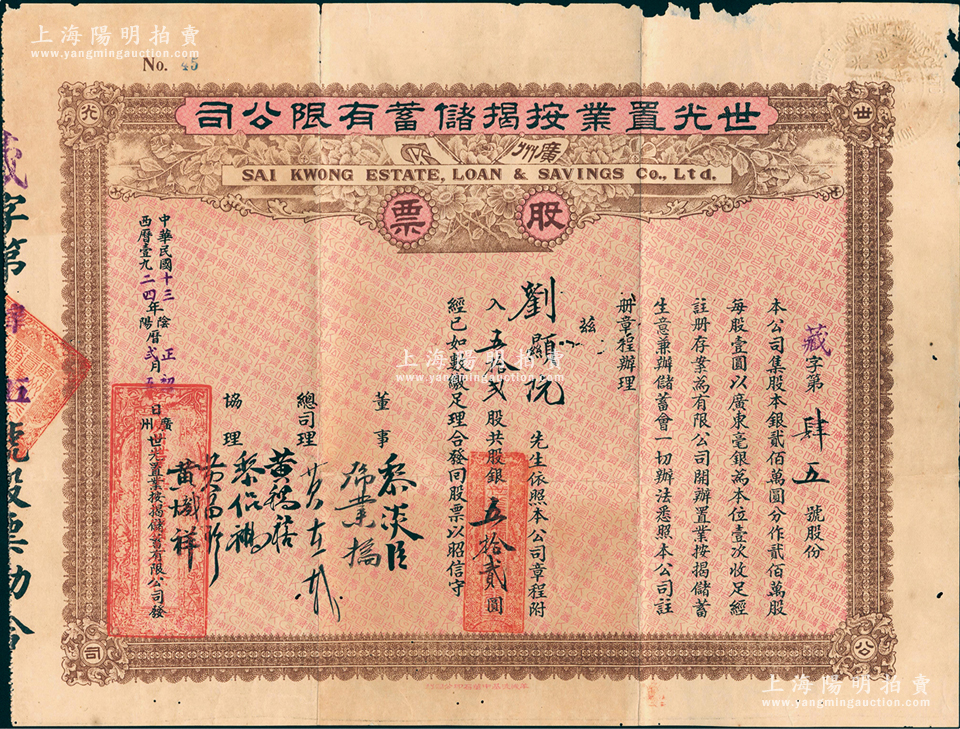 上海陽明拍賣
www.yangmingauction.com
No. 45
世光置業按揭儲蓄有限公司
廣州
SAI KWONG ESTATE, LOAN & SAVINGS Co., Ltd.
股票
世
光
公
司
藏字第肆五號股份
本公司集股本銀貳佰萬圓分作貳佰萬股
每股壹圓以廣東毫銀為本位壹次收足經
註册存案為有限公司開辦置業按揭儲蓄
生意兼辦儲蓄會一切辦法悉照本公司註
册章程辦理
茲
劉顯沅先生依照本公司章程附
入五拾弍股共股銀五拾貳圓
經已如數繳足理合發回股票以昭信守
董事
黎淡臣
總司理
協理
中華民國十三年陰曆正月
西曆壹九二四年陽曆弍月
日
廣州世光置業按揭儲蓄有限公司發
黄熾祥
字第
號股票
上海陽明拍賣
www.yangmingauction.com
上海陽明拍賣
www.yangmingauction.com